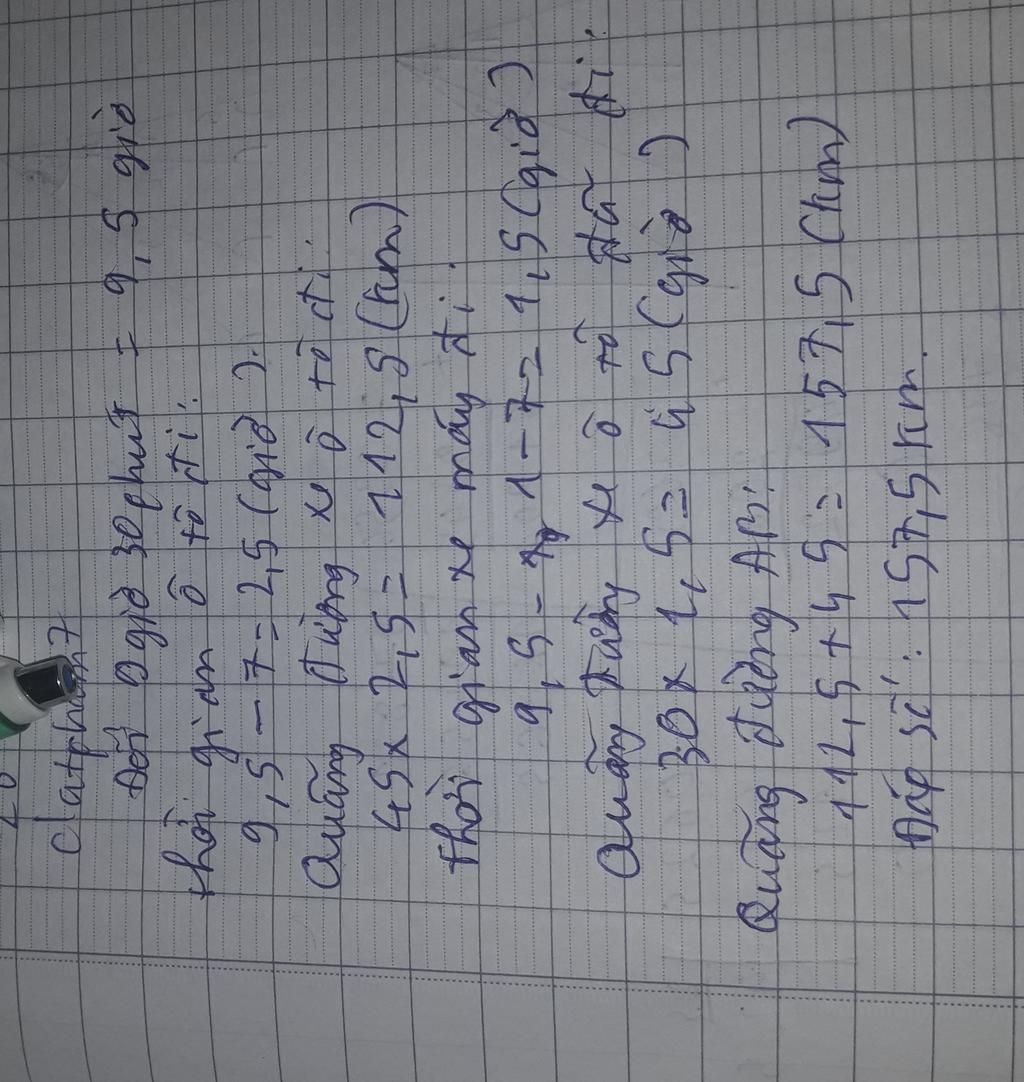 20
clatpham7
Đổi 9giờ 30phút = 9,5 giờ
thời gian ô tô đi:
9,5 - 7 = 2,5 (giờ)
Quãng đường xe ô tô đi
45 x 2,5 = 112,5 (km)
thời gian xe máy đi.
9,5 - 1 - 7 = 1,5 (giờ)
Quãng đường xe ô tô đã đi:
30 x 1,5 = 45 (giờ)
Quãng đường AB:
112,5 + 45 = 157,5 (km)
Đáp số: 157,5 km.